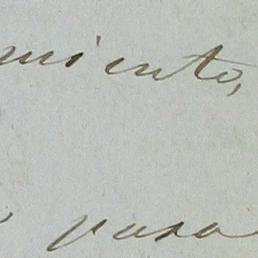 miento,
para